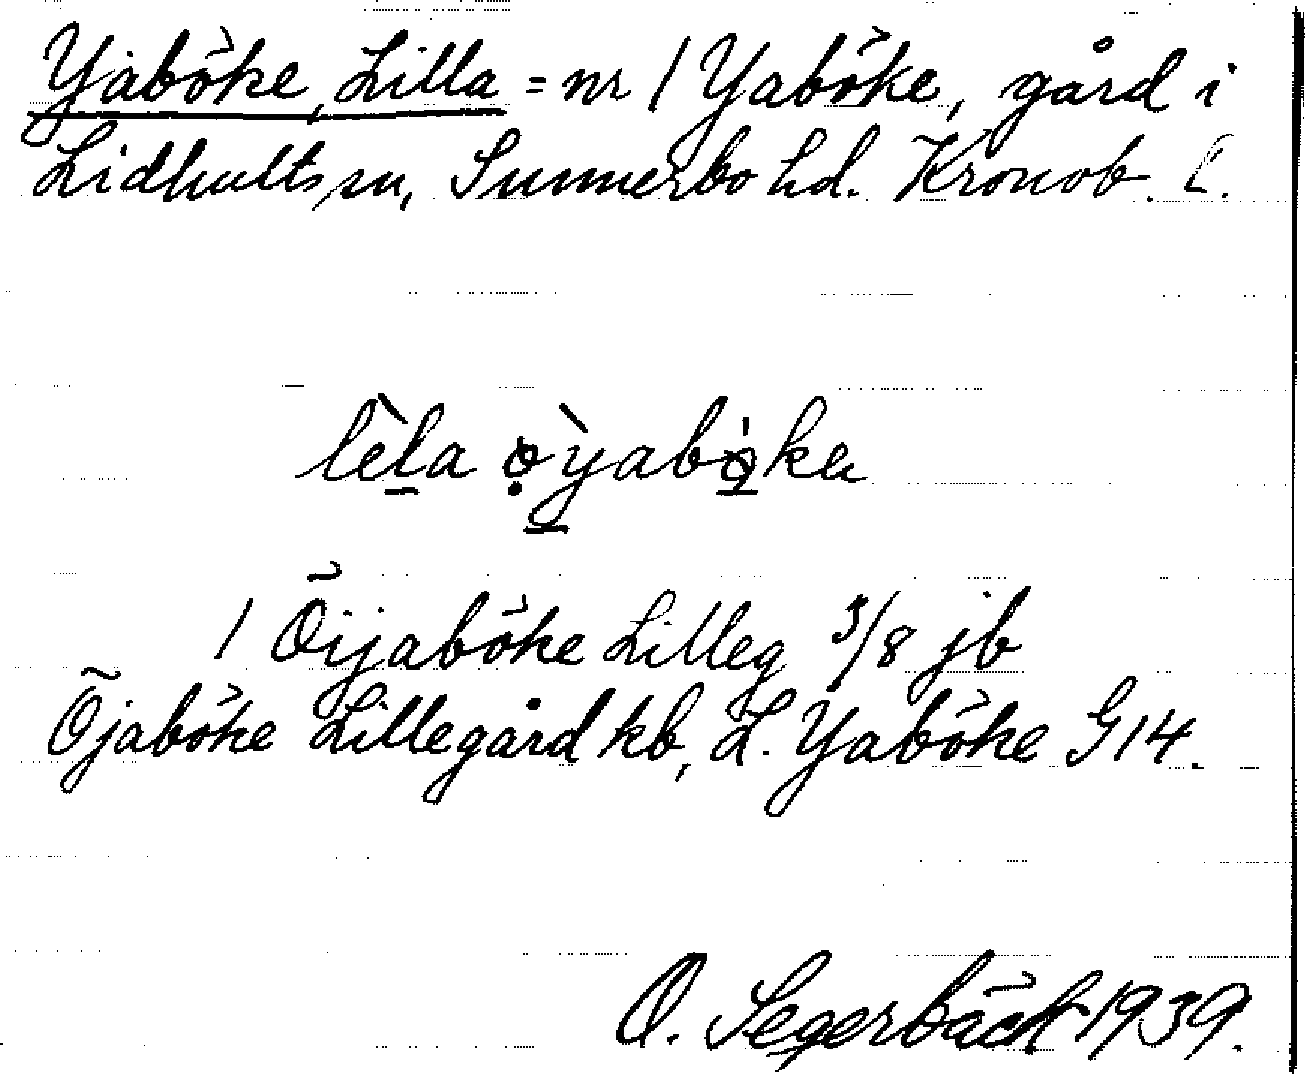 Yaböke, Lilla = nr 1 Yaböke, gård i
Lidhults sn, Sunnerbo hd. Kronob. l.
lèla ø̣̀yabøka
1 Öijaböke Lilleg 3/8 jb
Öjaböke Lillegård kb, L. Yaböke G14.
O. Segerbäck 1939.